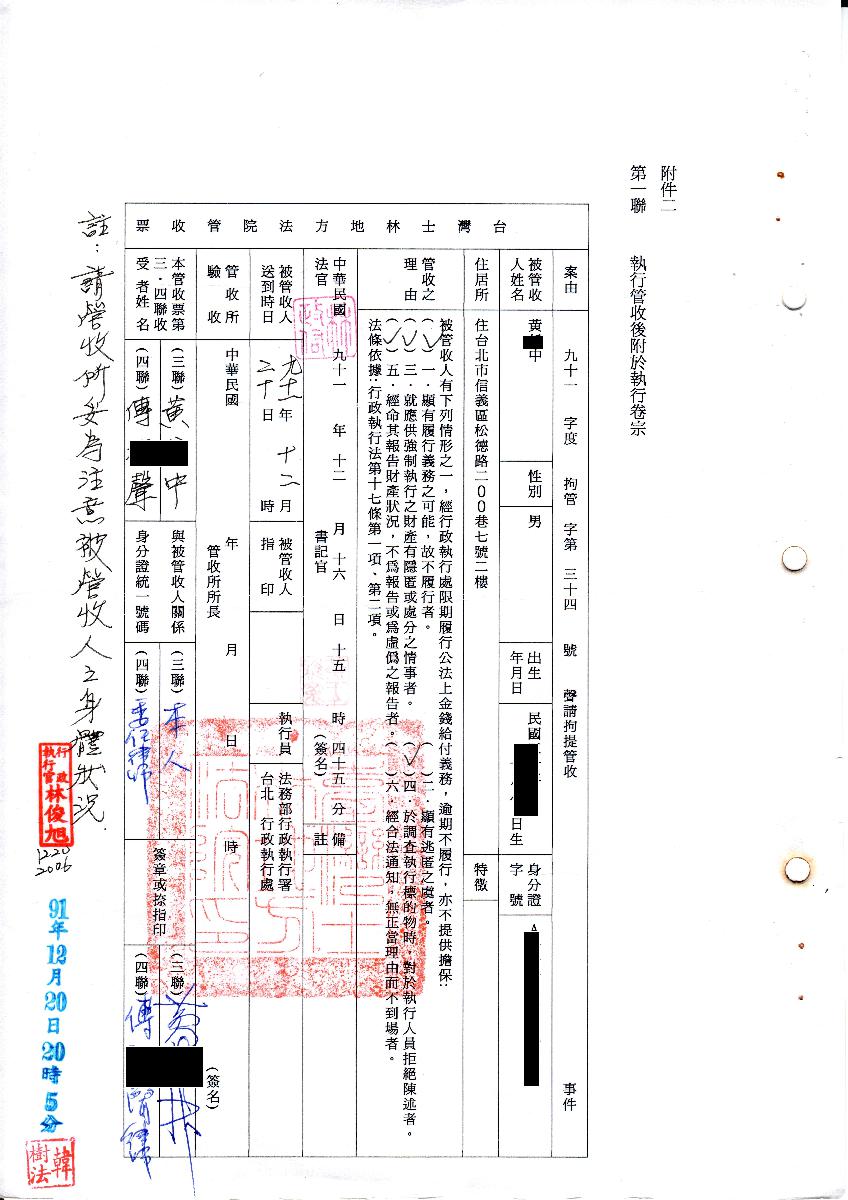 附件二
第一聯　執行管收後附於執行卷宗
台灣士林地方法院管收票
案由　九十一　字度　拘管　字第　三十四　號　聲請拘提管收　事件
被管收人姓名　黄　中　性別　男　出生年月日　民國　日生　身分證字號　A
住居所　住台北市信義區松德路二00巷七號二樓　特徵
管收之理由　被管收人有下列情形之一，經行政執行處限期履行公法上金錢給付義務，逾期不履行，亦不提供擔保：
(✓)一．顯有履行義務之可能，故不履行者。　( )二．顯有逃匿之虞者。
(✓)三．就應供強制執行之財產有隱匿或處分之情事者。　(✓)四．於調查執行標的物時，對於執行人員拒絕陳述者。
(✓)五．經命其報告財產狀況，不為報告或為虛偽之報告者。　( )六．經合法通知，無正當理由而不到場者。
法條依據：行政執行法第十七條第一項、第二項。
中華民國　九十一　年　十二　月　十六　日　十五　時　四十五　分　備註
法官　書記官　(簽名)
被管收人送到時日　九十一　年　十二　月　二十　日　時　被管收人指印　執行員　法務部行政執行署台北　行政執行處
管收所驗收　中華民國　年　月　日　時
管收所所長　(簽名)
本管收票第三．四聯收受者姓名　(三聯)　黄　中　與被管收人關係　(三聯)　本人　簽章或捺指印　(三聯)
(四聯)　傅　聲　身分證統一號碼　(四聯)　委任律師　(四聯)　傅
註：請管收所妥為注意被管收人之身體狀況．
行政執行官　林俊旭
1220
2006
91年12月20日20時5分
韓樹法